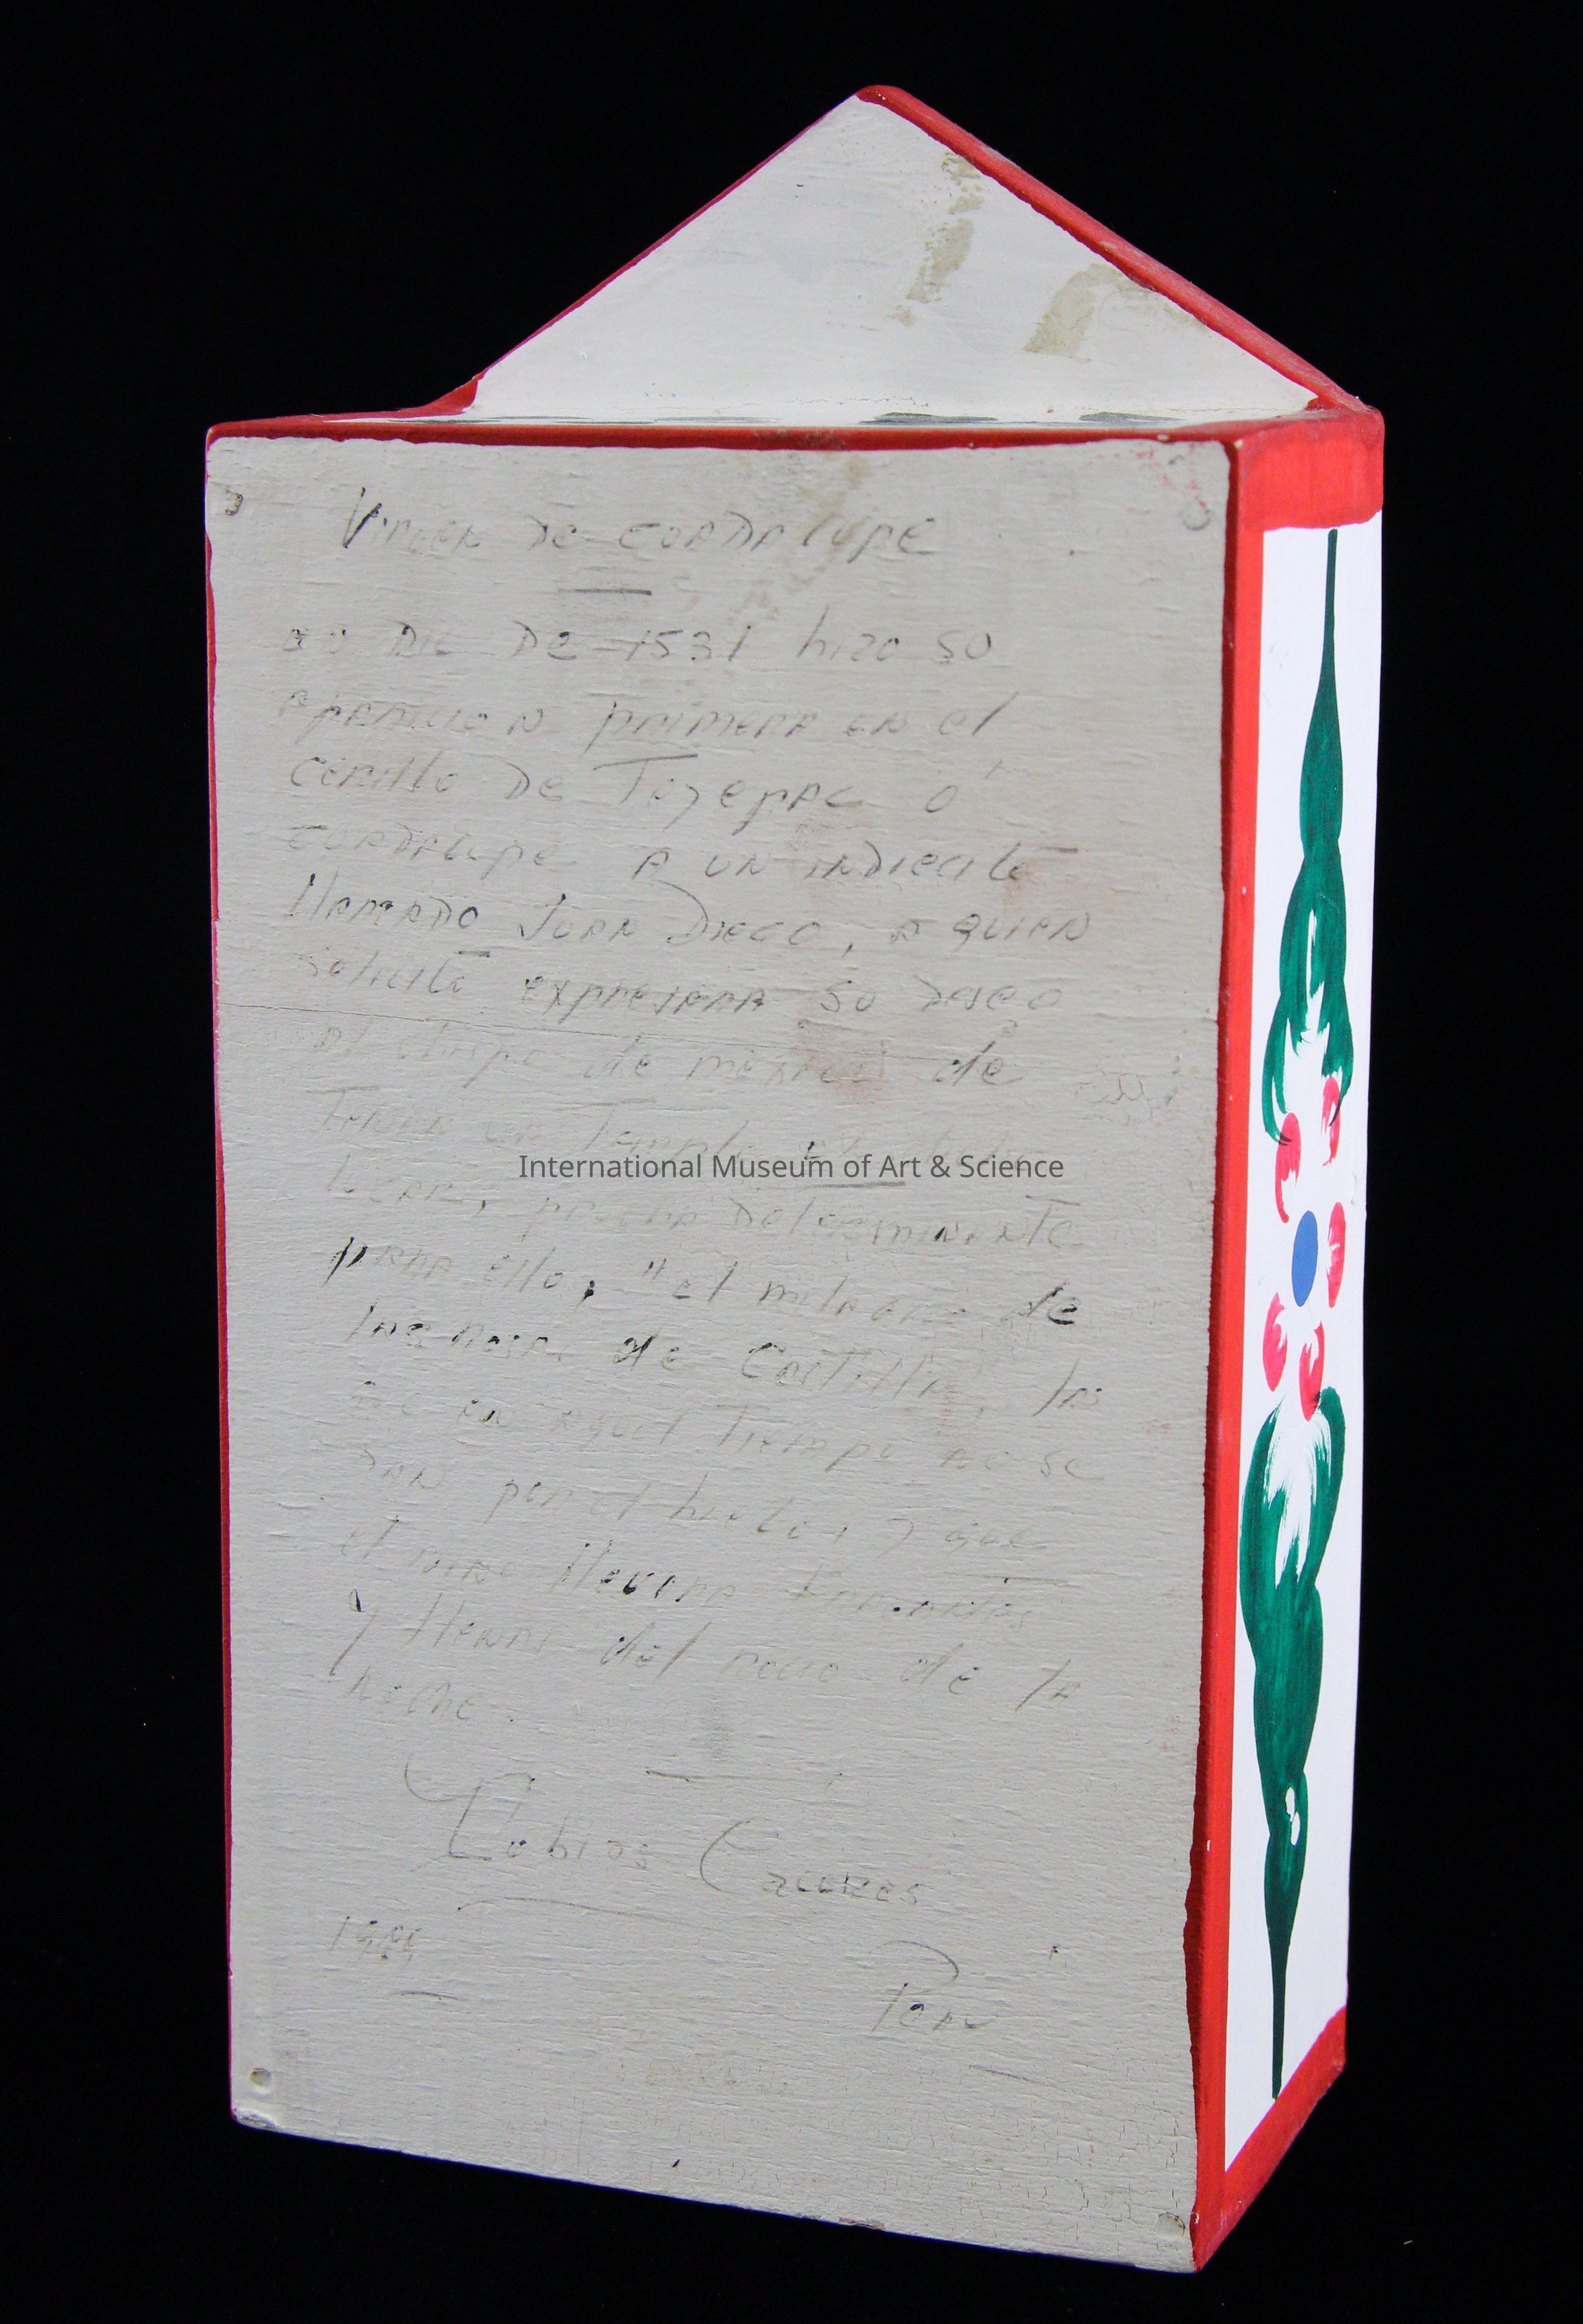 Virgen De Guadalupe
Dic De 1531 hizo so
aparicion primera en el
cerrillo De Tepepac ó
Guadalupe a un indiecito
llamado Juan Diego, a quien
solicitó expresara so Deseo
al obispo de mexico de
Tener un Templo
lugar, prueba Determinante
para ello, "el milagro de
las rosas de Castilla", las
en aquel Tiempo no se
Dan por el hielo, y que
el llevara
y llenas del rocio de la
noche.
Tobias
1989
Peru
International Museum of Art & Science